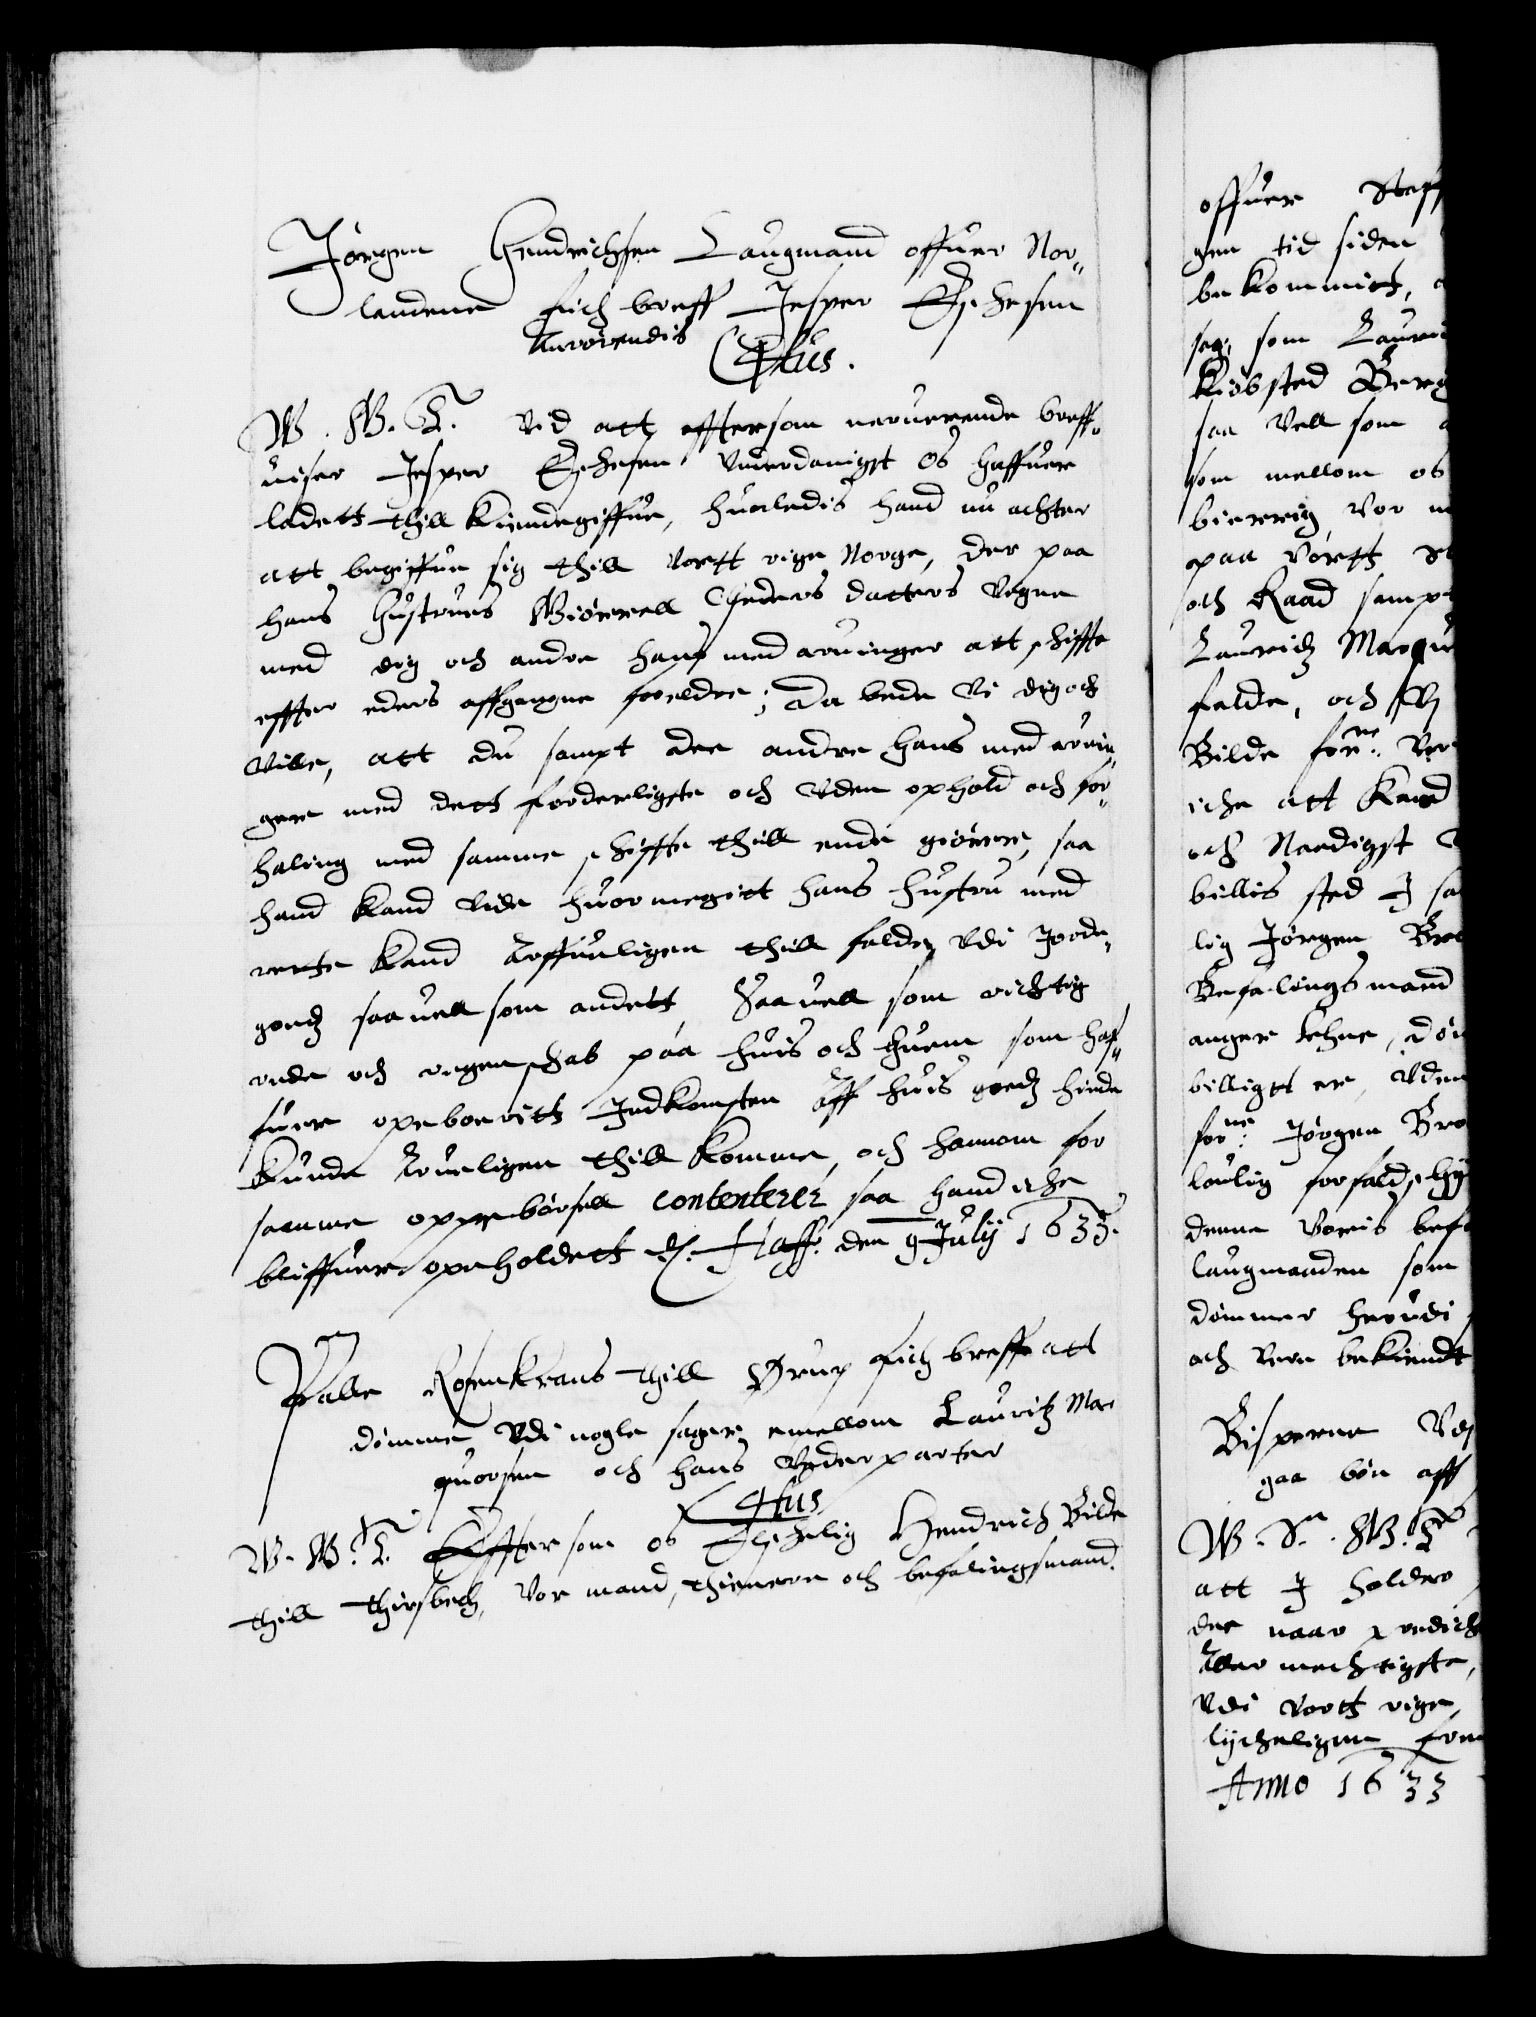 Jørgen Hendrichssen Laugmand offuer Nor„
landene fich breff Jesper
Anrørendis
Chus.
W. G. T. Vid att effterson neruerende breff„
uiser Jesper Vnderdanigst os haffuer
ladett thill kiendegiffue, huorledis hand nu achter
att begiffue sig thill vortt rige Norge, der paa
hans hustrues Giørrell Peders datters vegne
med dig och andre hans med aruinger att schiffte
effter eders affgangne forældre; Da bede Vi dig och
ville, att du sampt dee andre hans med aruin„
gere med dett forderligste och vden ophold och for„
haling med samme schiffte thill ende giørere, saa
hand kand vide huor megitt hans hustru med
rette kand Arffueligen thill falde, vdi Jorde„
goedz saauell som andett, Saauell som richtig
rede och regenschab paa huis och huem som haf„
fuer opeboeritt Indkomsten Aff huis goedz hinde
kunde Arueligen thill komme, och hannom for
samme oppebørsell contenterer saa hand iche
bliffuer opeholdett etc. Haff. den 9 Julij 1633.
Palle Rosenkrans thill Ørup fich breff att
dømme vdi nogle sager emellom Lauritz Mar
quorsen och hans Vederparter
Chus
W. G. T. Effter som os Elschelig Hendrich Bilde
thill Thirsbech, Vor mand, thienere och befalingsmand
offuer
gen tid siden
bekommitt,
sag, som
Kiøbsted
saa vell som
som mellom os
bierrig, vor
paa vortt
och Raad
Lauridz
falde, och
Bilde forne:
iche att kand
och Naadigst
billig sted I
lig Jørgen
Befalingsmand
anger Lehne,
billigt er, vden
forne: Jørgen
laulig
denne voris
laugmanden som
dømmer herudi
och vere bekiendt
Bisperne vdj
gaa bøn aff
W. S. G. T.
att I holder
der naar
Allermechtigste,
vdi vortt rige
lycheligen
Anno 1633